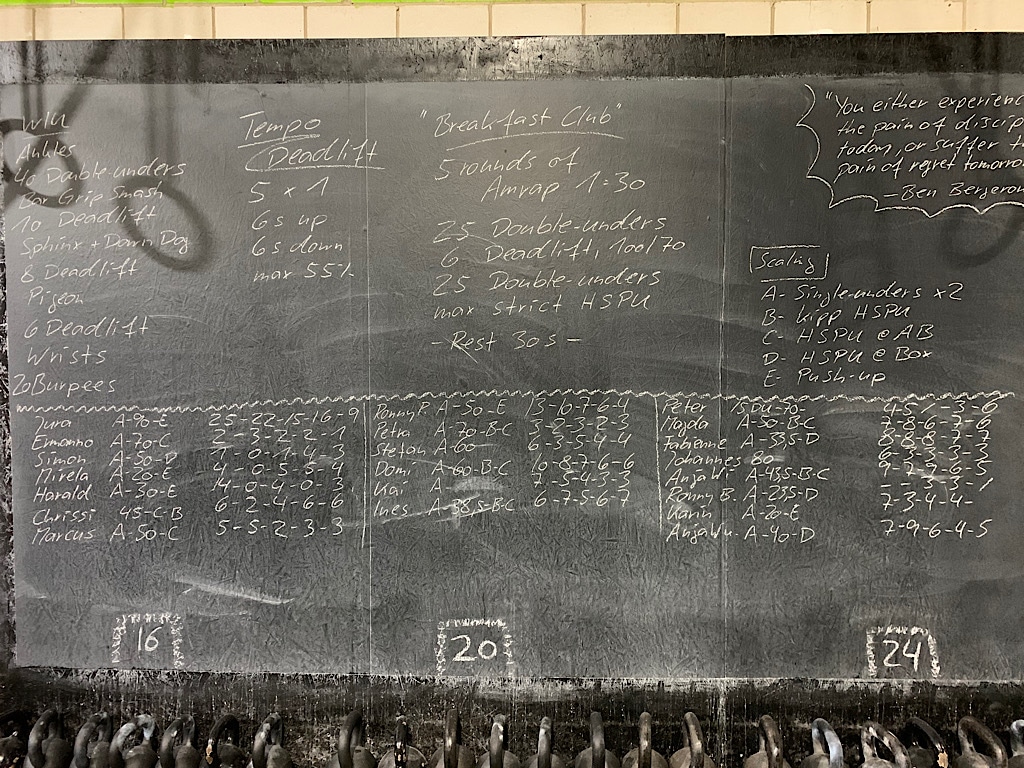 WU
Ankles
40 Double-unders
Bar Grip Smash
10 Deadlift
Sphinx + Down Dog
8 Deadlift
Pigeon
6 Deadlift
Wrists
20 Burpees
Tempo
Deadlift
5 x 1
6s up
6s down
max 55%
"Breakfast Club"
5 rounds of
Amrap 1:30
25 Double-unders
6 Deadlift, 100/70
25 Double-unders
max strict HSPU
- Rest 30s -
"You either experienc
the pain of discip
today, or suffer t
pain of regret tomorro
- Ben Bergeron
Scaling
A- Single-unders x2
B- Kipp HSPU
C- HSPU @ AB
D- HSPU @ Box
E- Push-up
Jura A-90-E 25-22-15-16-9
Ermanno A-70-C 2-3-2-2-1
Simon A-50-D 1-0-1-4-3
Mirela A-20-E 4-0-5-5-4
Harald A-50-E 14-0-4-0-3
Chrissi 45-C-B 6-2-4-6-6
Marcus A-50-C 5-5-2-3-3
Ronny P. A-50-E 13-10-7-6-4
Petra A-70-B-C 3-2-3-2-3
Stefan A-60 6-3-5-4-4
Domi A-60-B-C 10-8-7-6-6
Kai A- 7-5-4-3-3
Ines A-38,5-B-C 6-7-5-6-7
Peter 15DU-70- 4-5-1-3-6
Majda A-50-B-C 7-8-6-7-6
Fabienne A-33,5-D 8-8-8-7-7
Johannes 80 6-3-3-3-3
Anja W. A-43,5-B-C 9-7-7-6-5
Ronny B. A-23,5-D
Karin A-20-E 7-3-4-4-
Anja W. A-40-D 7-9-6-4-5
16
20
24